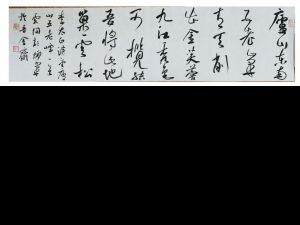 廬山東南
五老峯
青天削
出金芙蓉
九江秀色
可攬結
吾將此地
巢雲松
李太白
山五老峰一